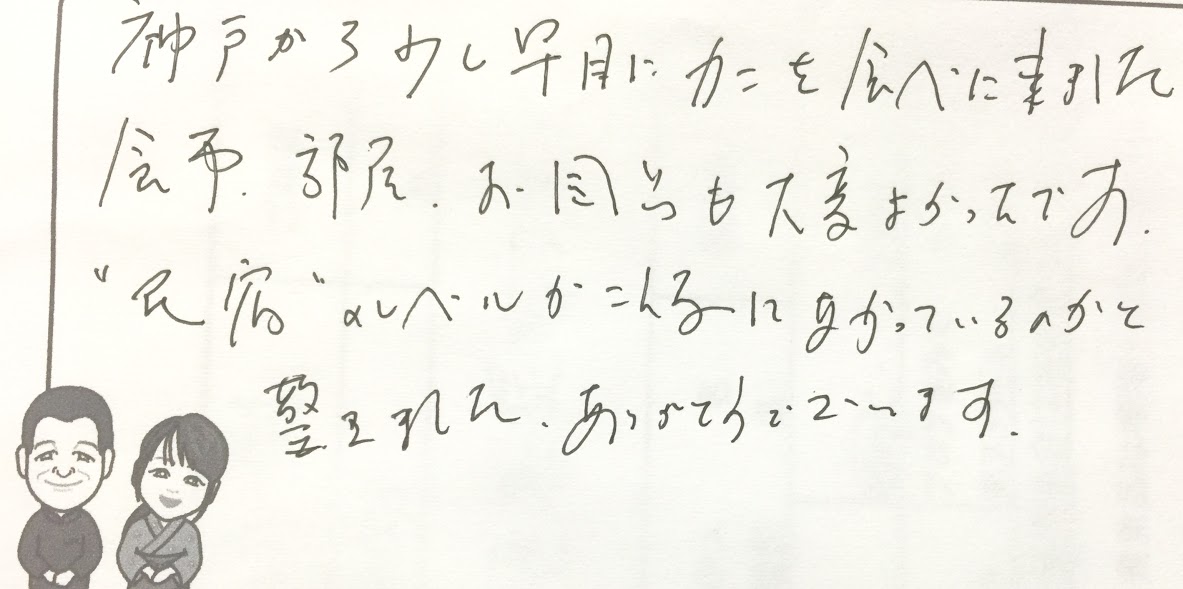 神戸から少し早目にカニを食べに来ました
食事、部屋、お風呂も大変よかったです。
“民宿”のレベルがこんなに良かっているのかと
驚きました、ありがとうございます。